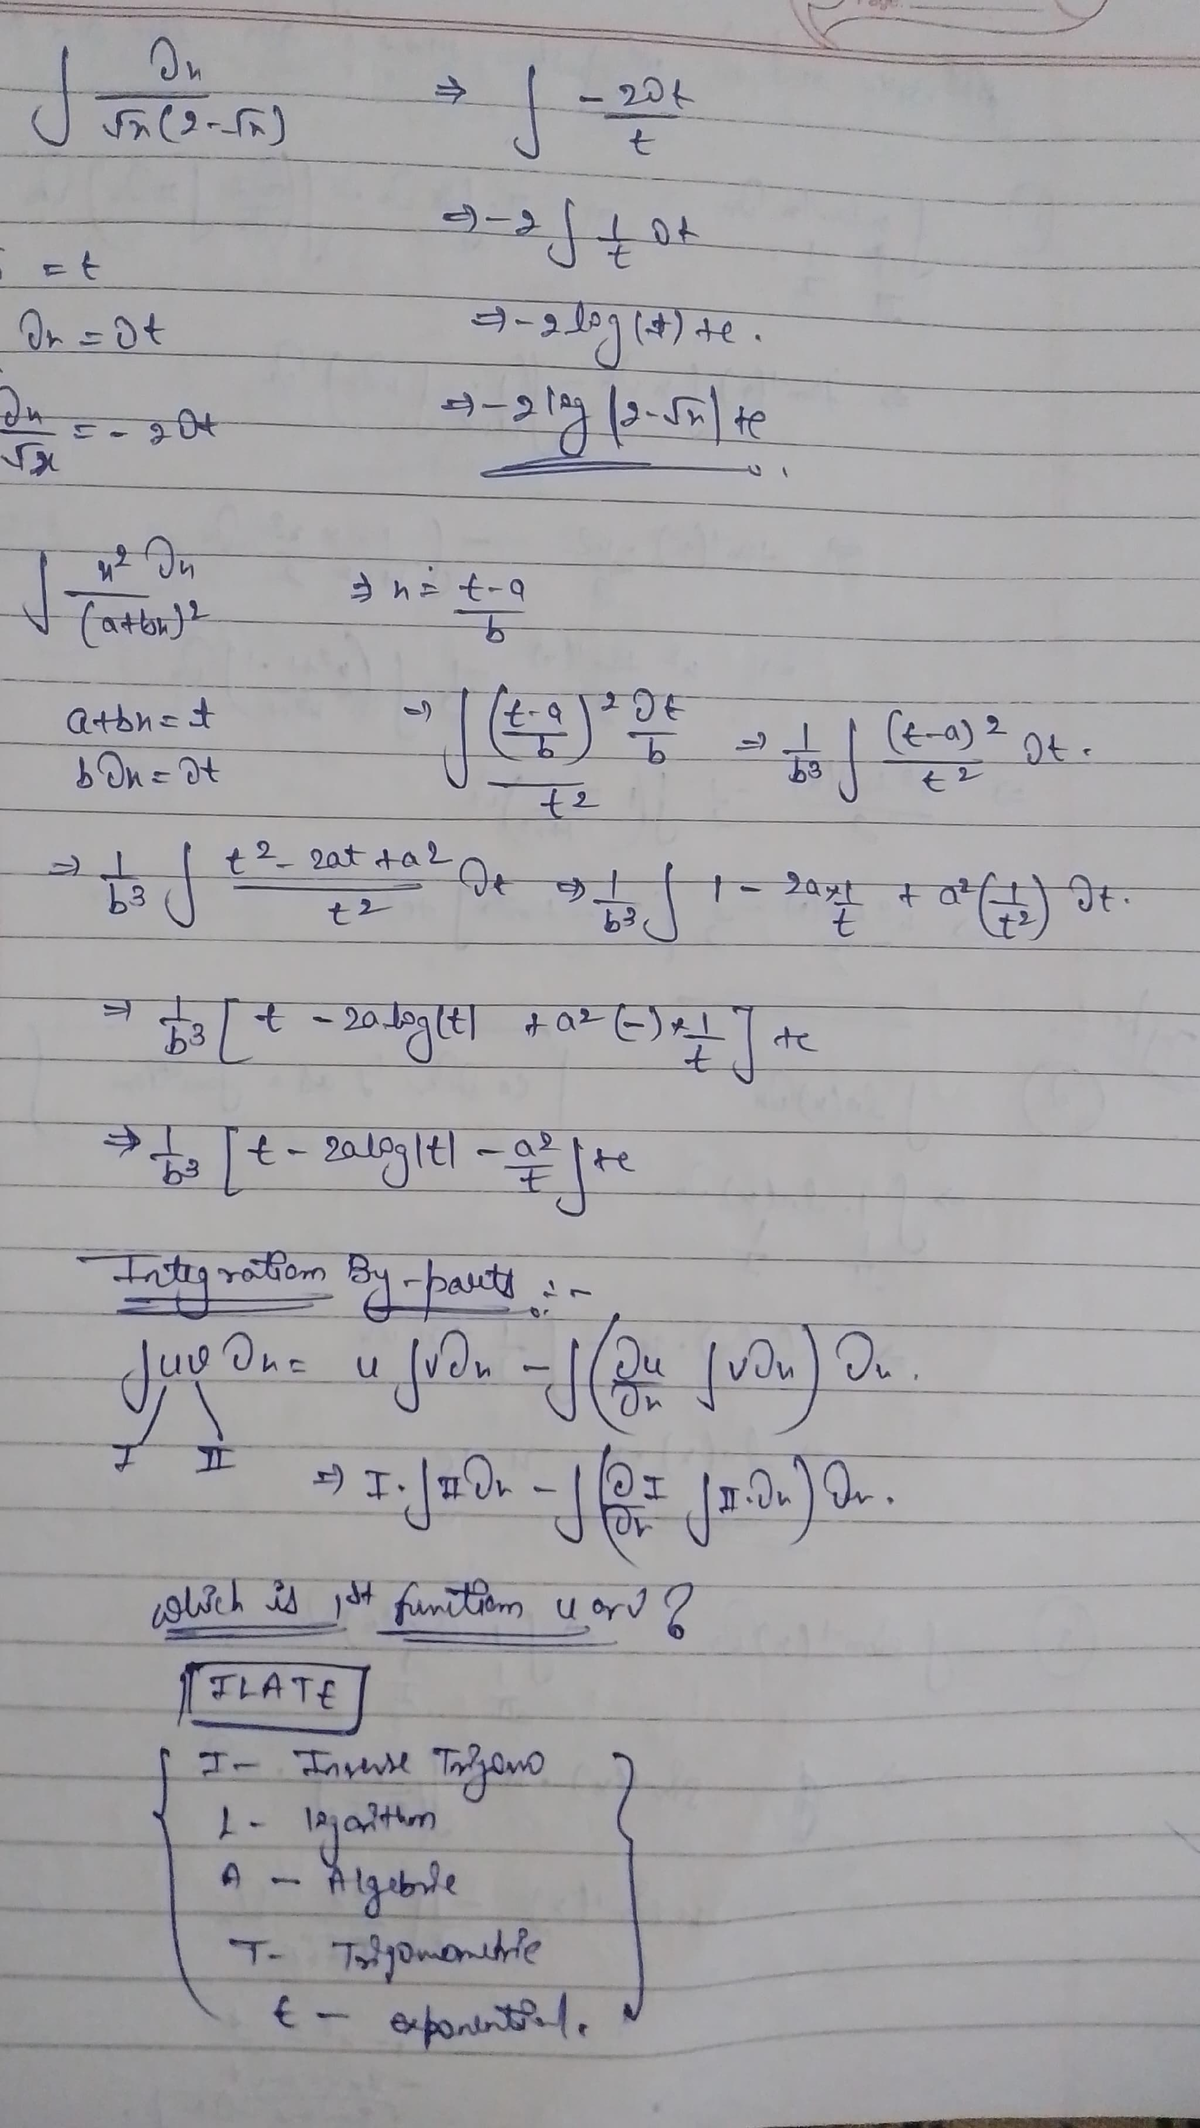 ∫ ∂x / √x(2-√x) ⇒ ∫ -2∂t / t
⇒ -2 ∫ 1/t ∂t
= t
∂x = ∂t ⇒ -2 log(t) + c.
∂x/√x = - 2∂t ⇒ -2 log |2-√x| + c
∫ x² ∂x / (a+bx)² ⇒ x = t-a / b
a+bx = t ⇒ ∫ (t-a / b)² ∂t/b / t² ⇒ 1/b³ ∫ (t-a)² / t² ∂t.
b∂x = ∂t
⇒ 1/b³ ∫ t² - 2at + a² / t² ∂t ⇒ 1/b³ ∫ 1 - 2a×1/t + a²(1/t²) ∂t.
⇒ 1/b³ [ t - 2a log|t| + a² (-) × 1/t ] + c
⇒ 1/b³ [ t - 2a log|t| - a²/t ] + c
Integration By-parts :-
∫uv ∂x = u ∫v∂x - ∫(∂u/∂x ∫v∂x) ∂x.
I II
⇒ I.∫II∂x - ∫(∂I/∂x ∫II.∂x) ∂x.
which is 1st function u or v ?
ILATE
I - Inverse Trigono
L - logarithm
A - Algebric
T - Trigonometric
E - exponential.